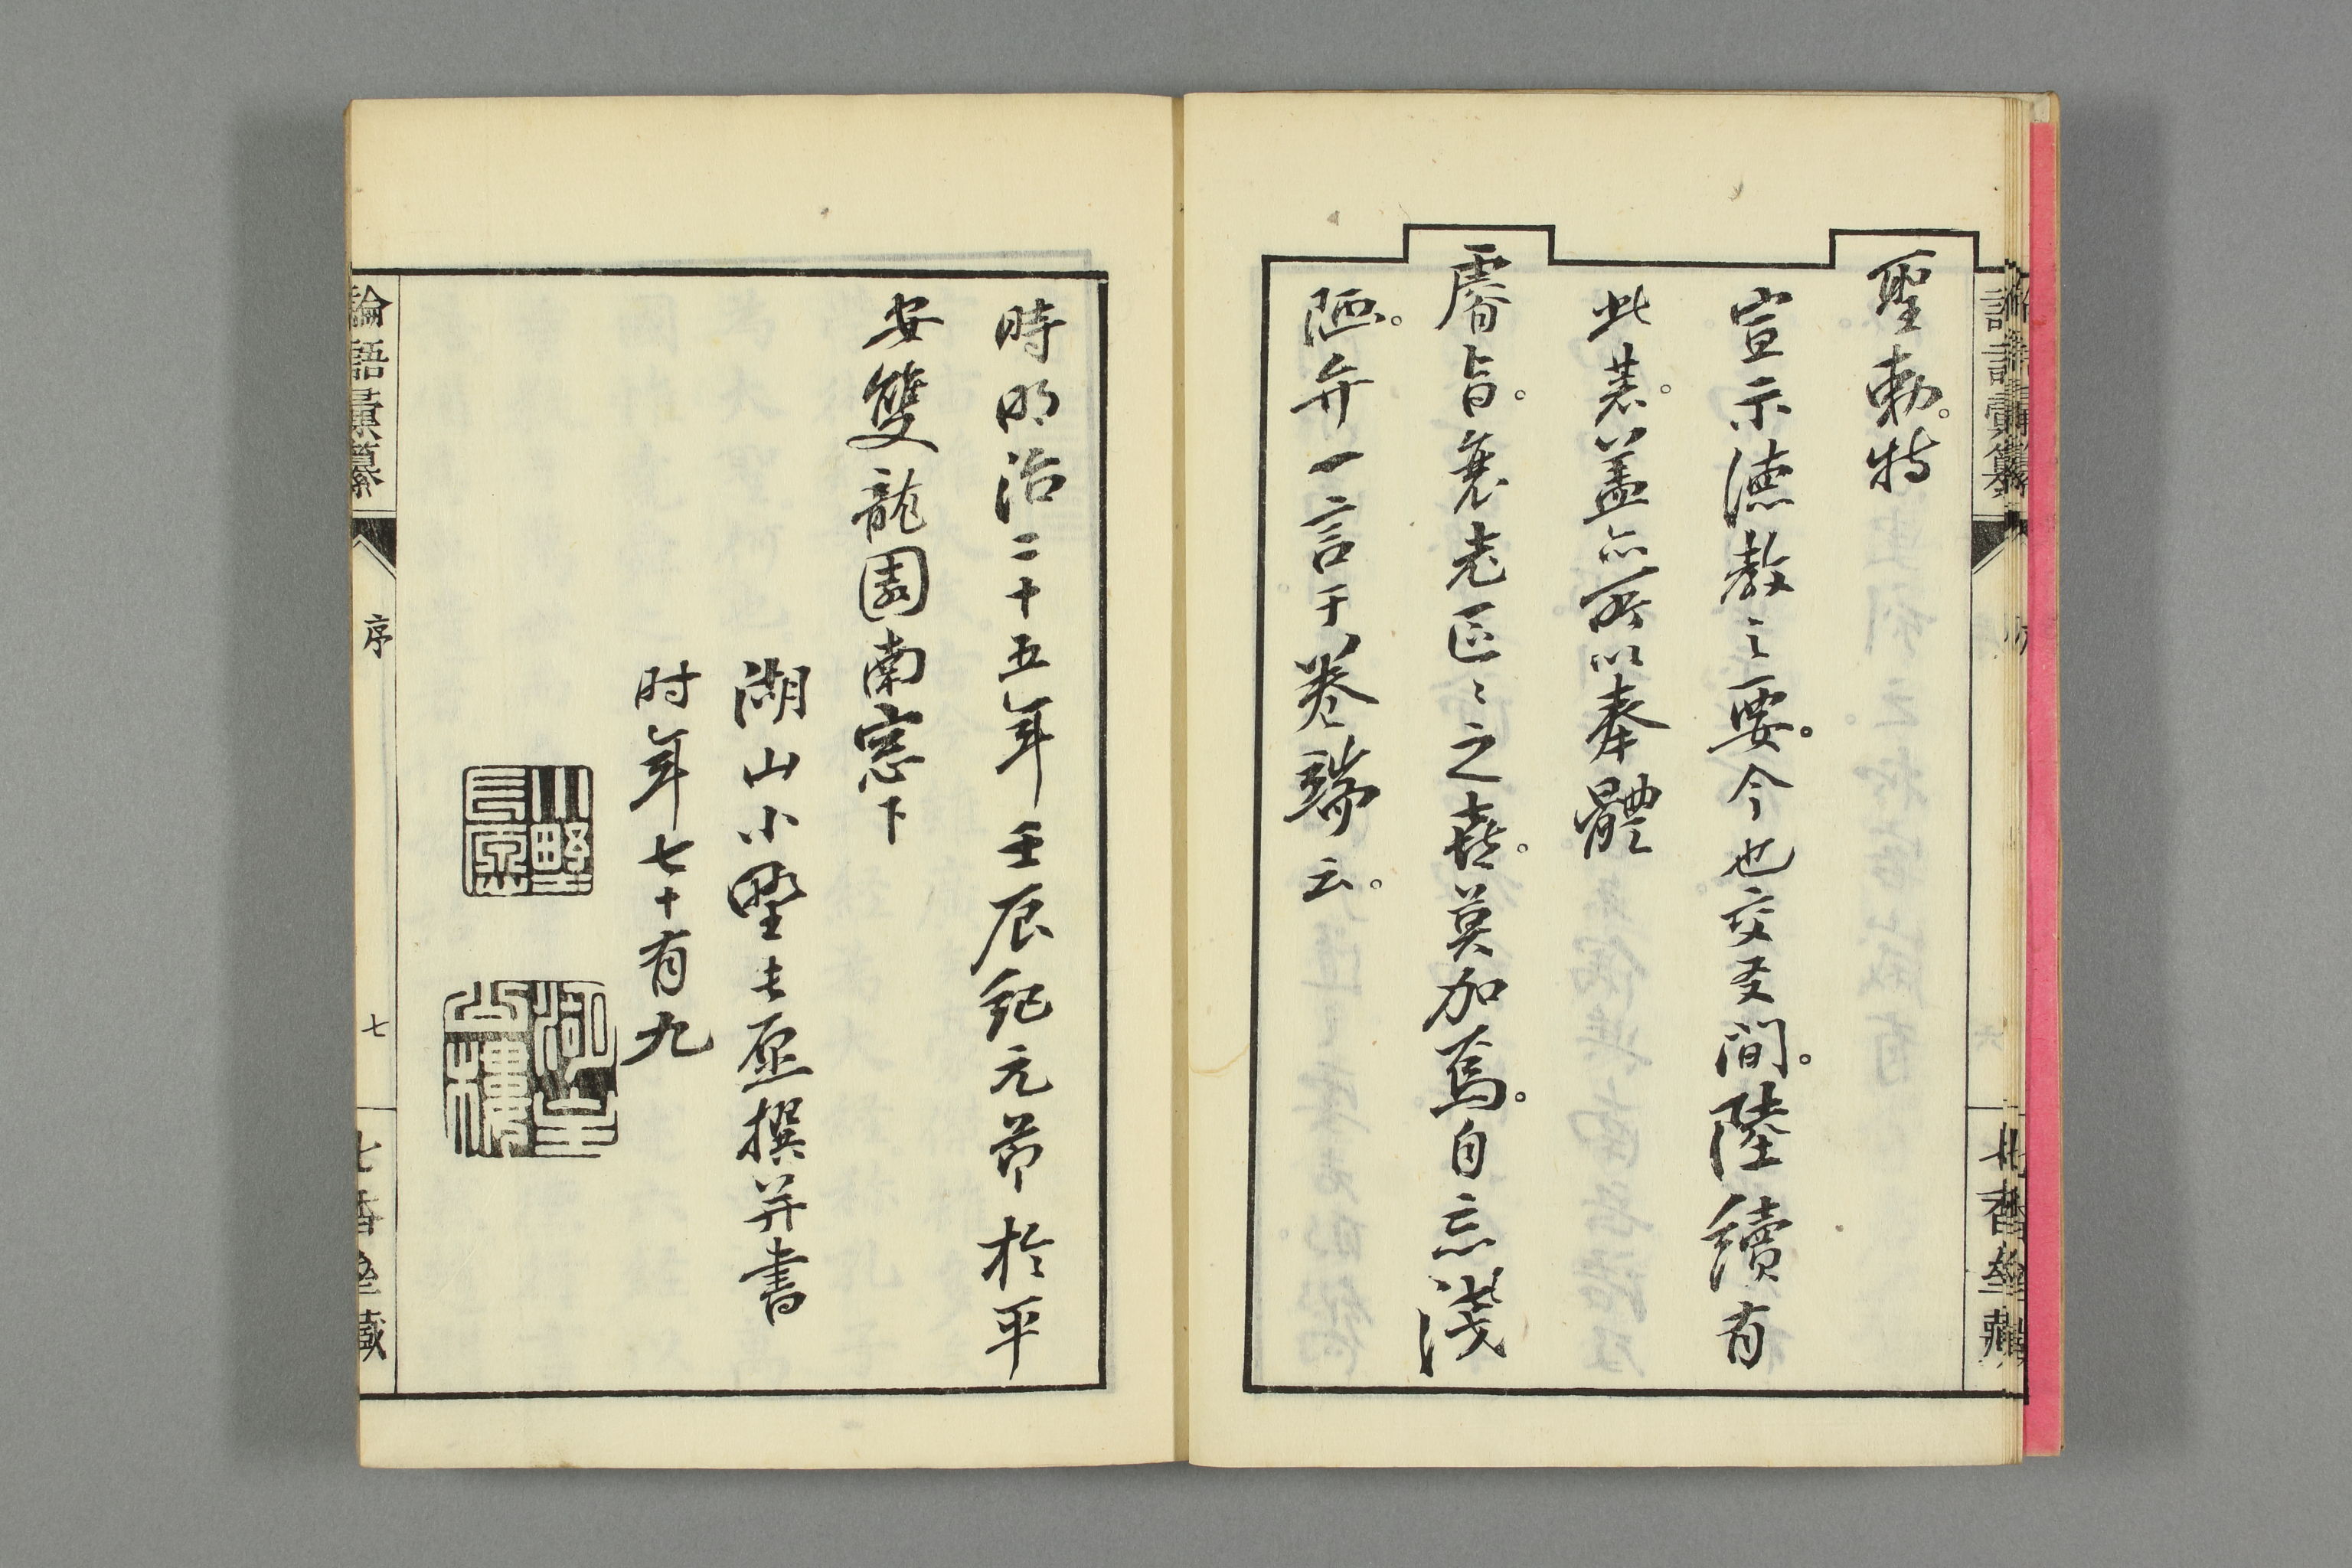 聖勅。特
宣示徳教之要。今也交叉間。陸續有
此著。蓋亦所以奉體
睿旨。衰老区〻之喜。莫加焉。自忘淺
陋。弁一言于卷端云。
時明治二十五年壬辰紀元節於平
安雙龍園南窓下
湖山小野長愿撰并書
时年七十有九
小野長愿
論語彙纂
序
七
七香齋藏